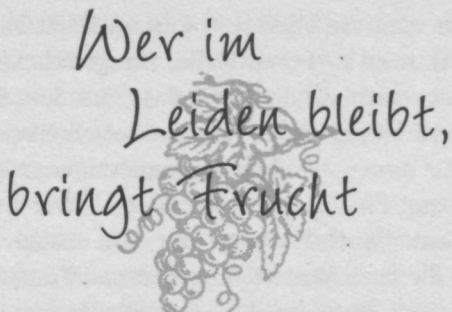 Wer im
Leiden bleibt,
bringt Frucht